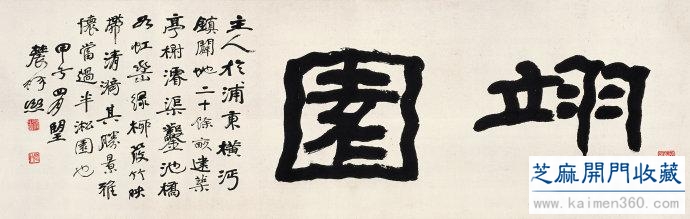 翊園
主人於浦東橫沔
鎮闢地二十餘畝建築
亭榭濬渠鑿池橋
虹緣柳竹映
帶清漪其勝景雅
懷當過半淞園也
甲子四月望
農髯熙
芝麻開門收藏
www.kaimen360.com